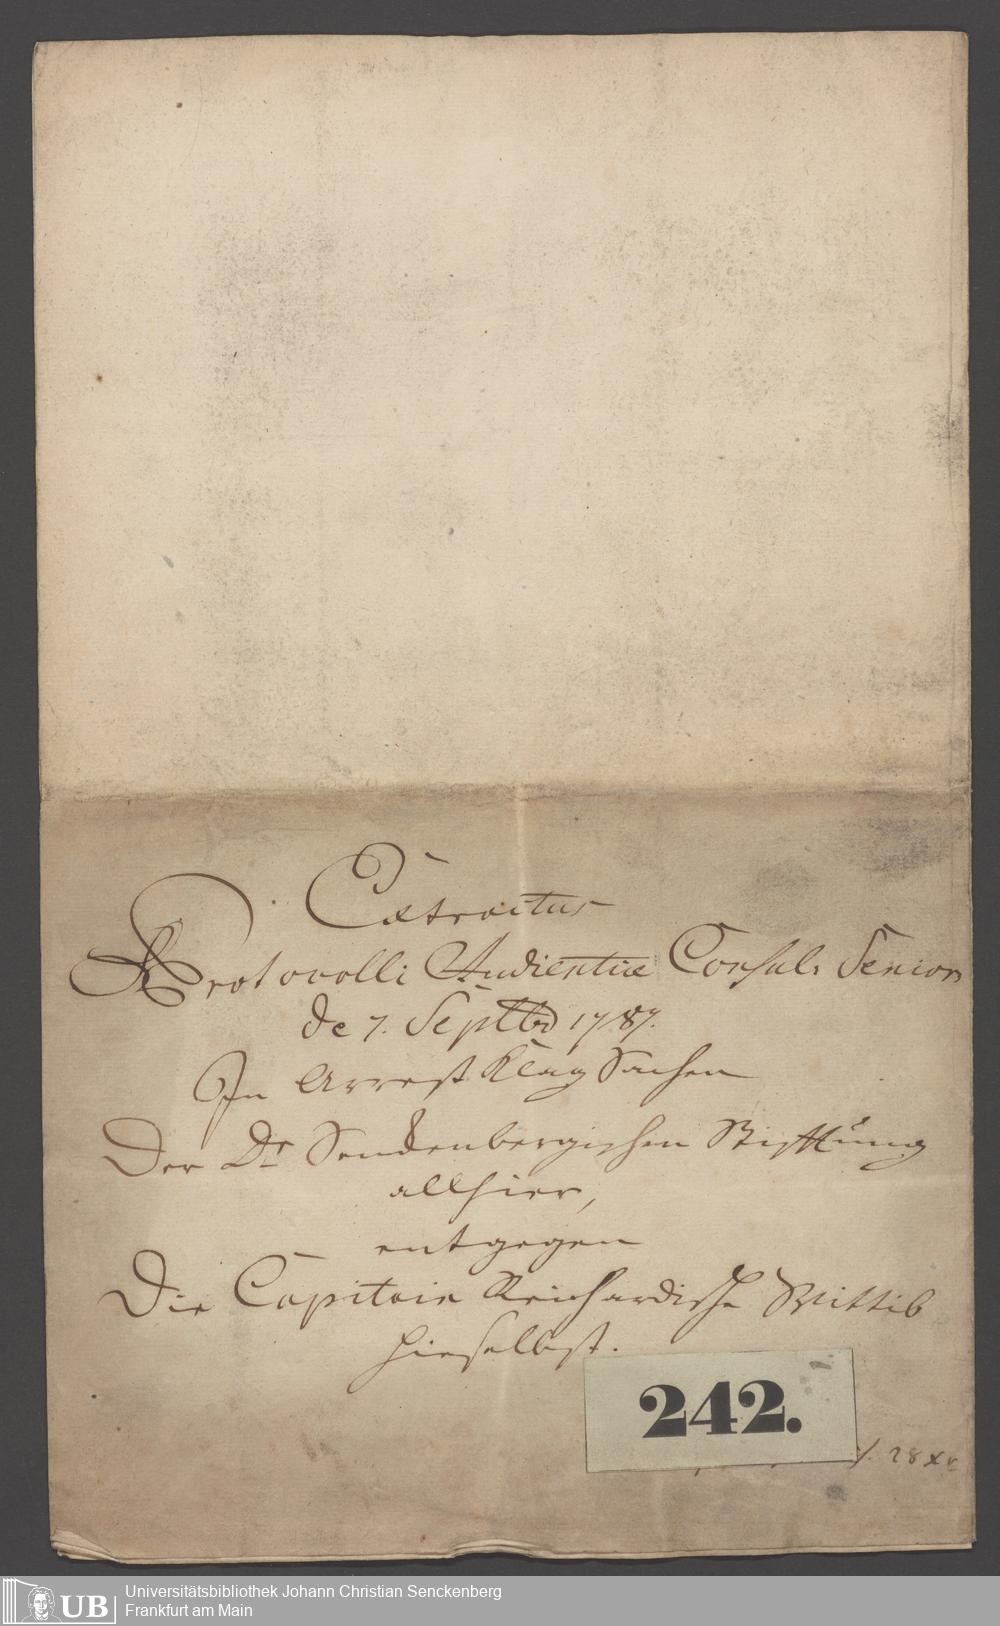 Extractus
Protocolli Audientiæ Consul. Senior
de 7. Septbr 1787.
In Arrest Klag Sachen
Der Dr Senckenbergischen Stifftung
allhier,
entgegen
Die Capitain Reichardische Wittib
hieselbst.
242.
28 xr
UB
Universitätsbibliothek Johann Christian Senckenberg
Frankfurt am Main